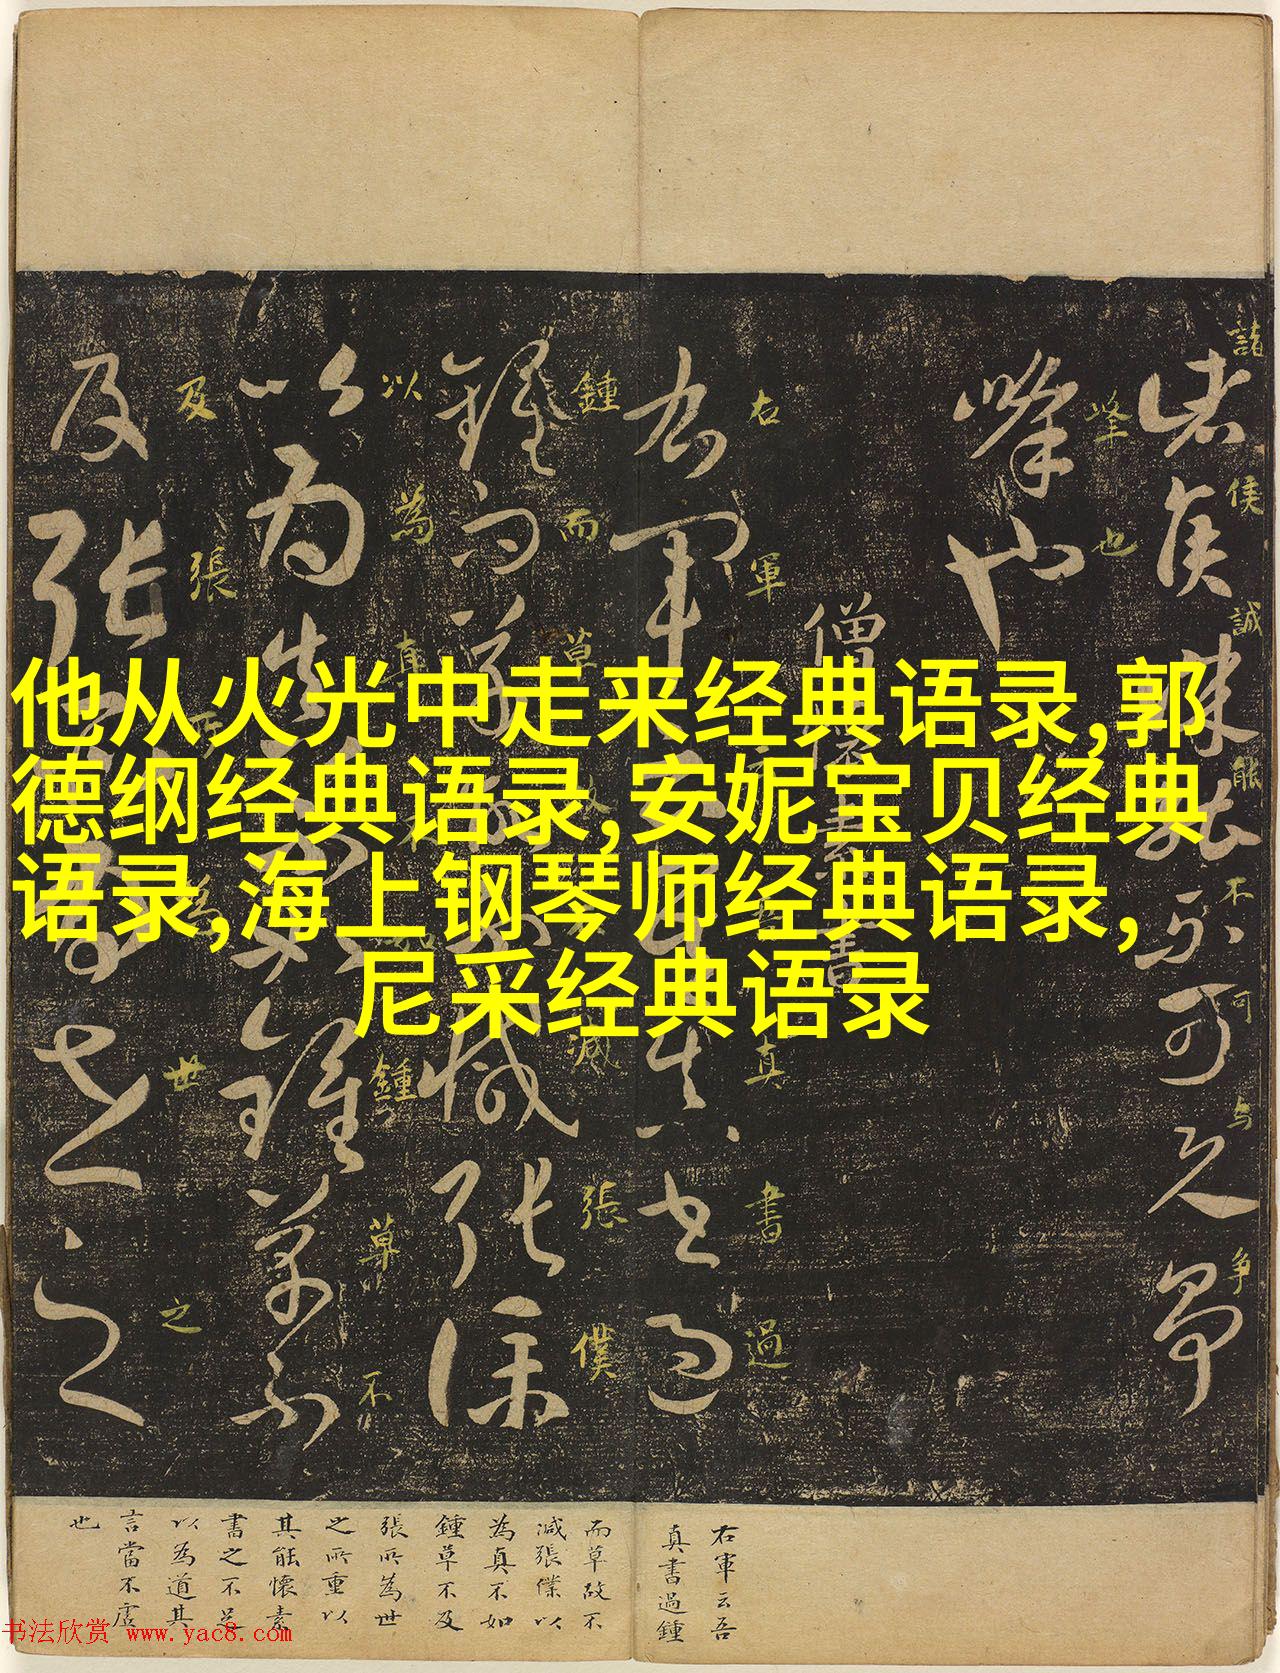 他从火光中走来经典语录,郭
德纲经典语录,安妮宝贝经典
语录,海上钢琴师经典语录,
尼采经典语录
諸侯誠能不可与争
峰也
僧懷素書
右軍云吾真書過
鍾而草故不減張僕
以為真不如鍾草不
及張所為世之
右軍云吾
真書過鍾
而草故不
減張僕以
為真不如
鍾草不及
張所為世
之所重以
其能懷素
書之不足
以為道其
言當不虛
也
书法欣赏 www.yac8.com